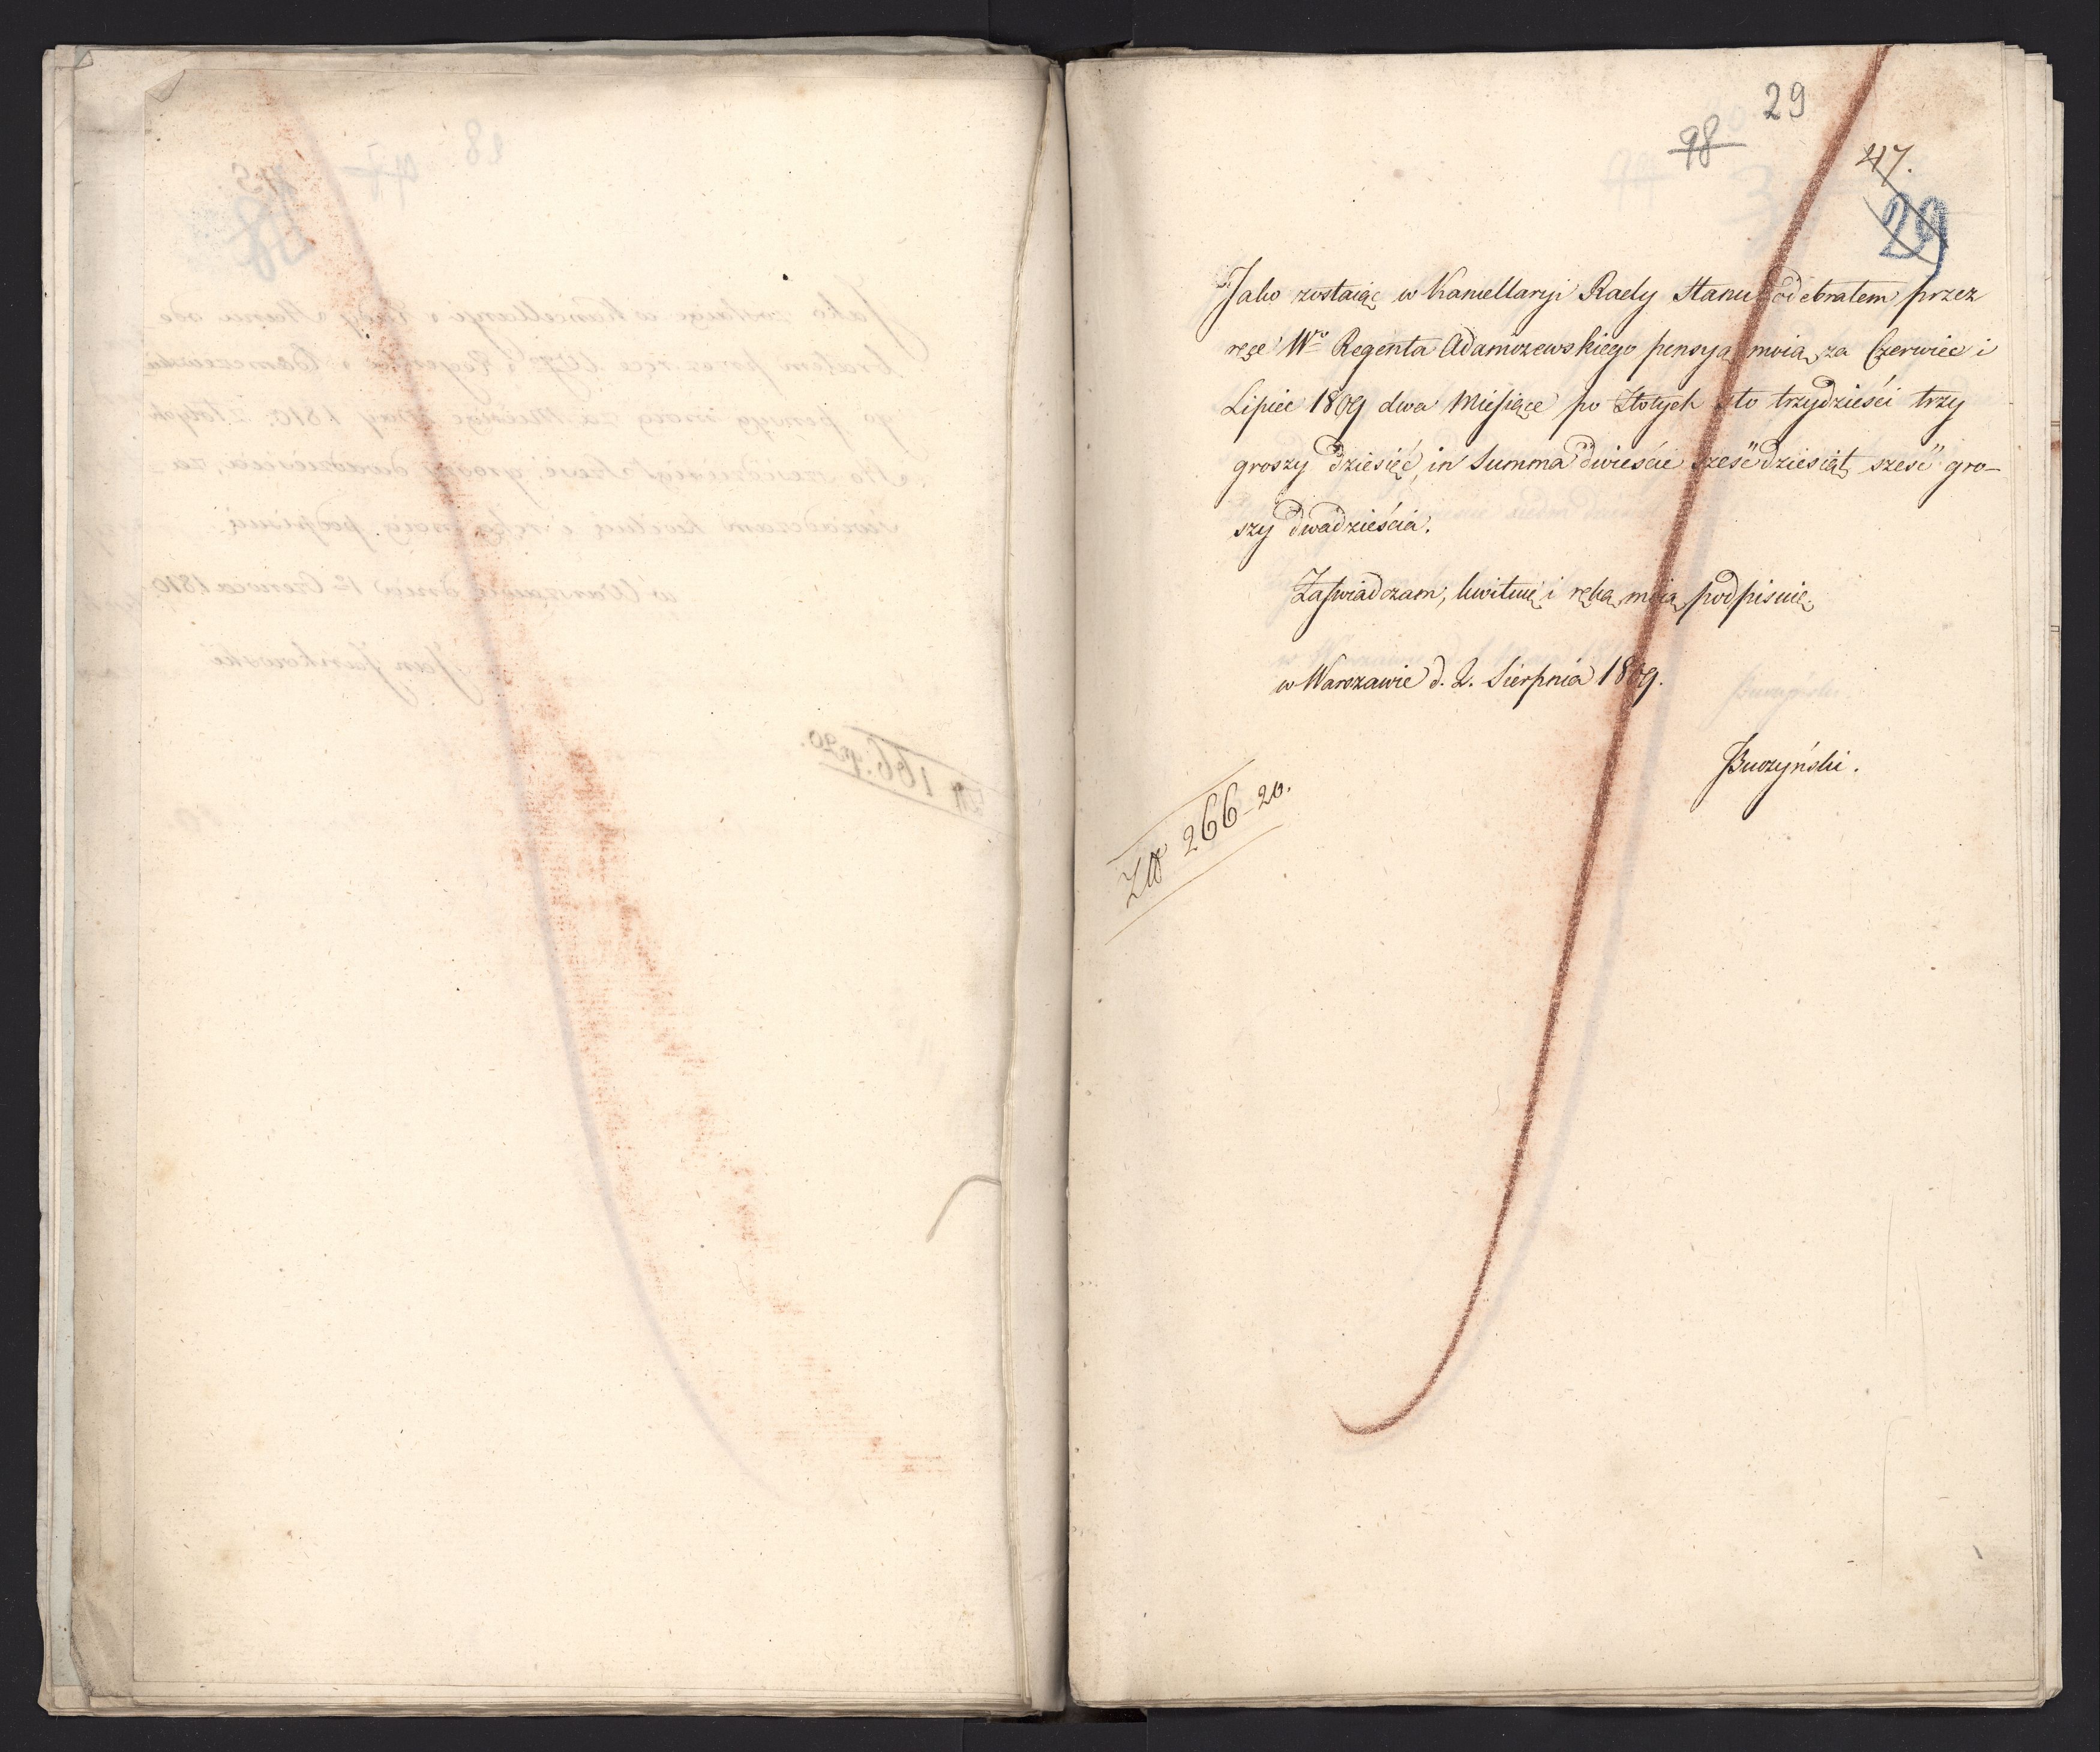 29
98
47.
29
Jako zostaiąc w Kancellaryi Rady Stanu odebrałem przez
ręce Wgo Regenta Adamczewskiego pensyą moią za Czerwiec i
Lipiec 1809 dwa Miesiące po Złotych sto trzydzieści trzy
groszy dziesięć, in Summa dwieście sześćdziesiąt sześć gro-
szy dwadzieścia.
Zaświadczam, kwituię i ręką moią podpisuię.
w Warszawie d. 2. Sierpnia 1809.
Buczyński.
Zł 266-20.